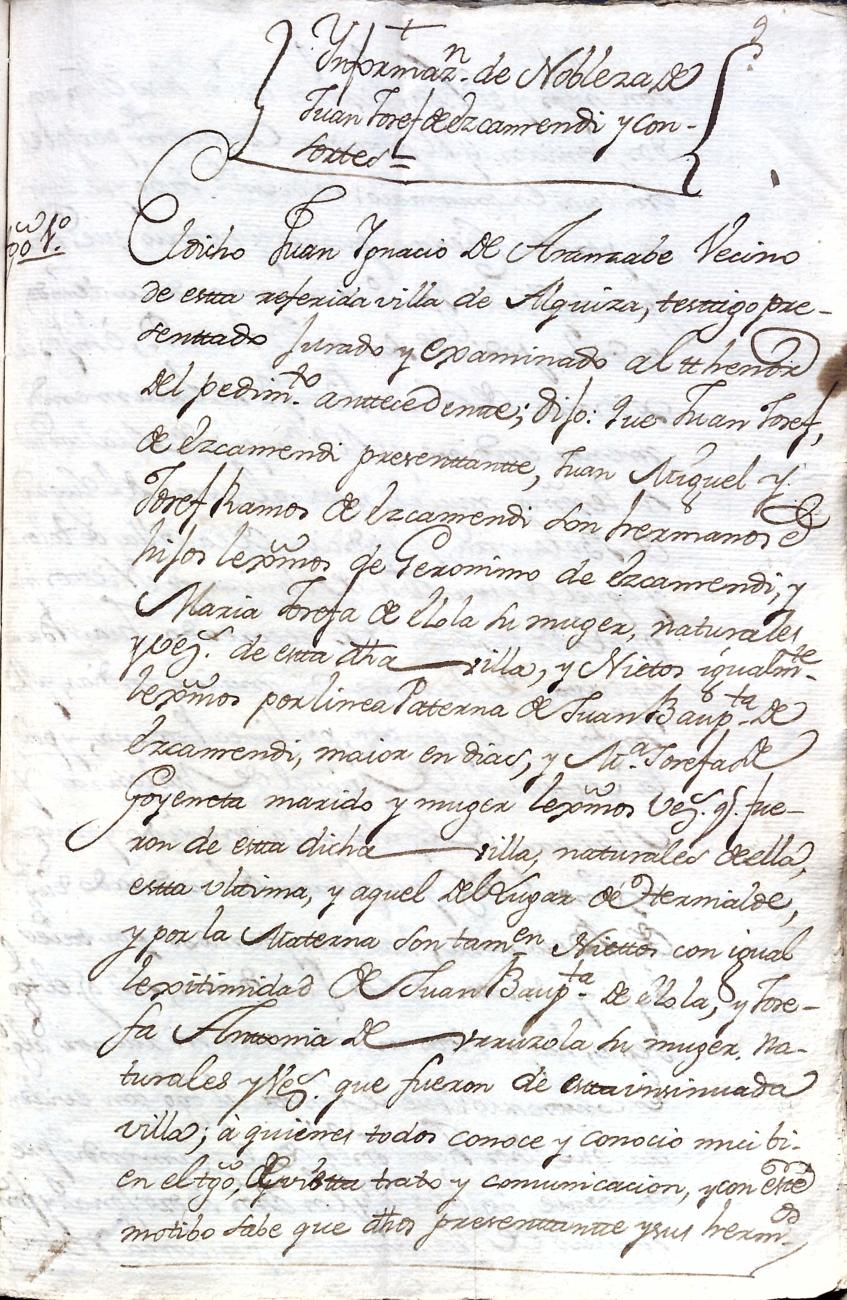 9
Ynformazn. de Nobleza de
Juan Josef de Ezcamendi y con-
sortes =
tgo 1.º
El dicho Juan Ygnacio de Aranzabe Vecino
de estta referida villa de Alquiza, testtigo pre-
senttado Jurado y examinado al tthenor
del pedimto. anttecedentte; dijo: Que Juan Josef,
de Ezcamendi presenttantte, Juan Miguel y
Josef Ramos de Ezcamendi son hermanos è
hijos lexmos de Geronimo de Ezcamendi, y
Maria Josefa de Elola su muger, naturales
y vezs. de estta dha villa, y Nietos igualmte.
lexmos por linea Paterna de Juan Baupta. de
Ezcamendi, maior en dias, y Ma. Josefa de
Goyeneta marido y muger lexmos vezs. qs. fue-
ron de estta dicha villa, naturales de ella,
estta vltima, y aquel del Lugar de Hernialde,
y por la Materna son tamen Niettos con igual
lexitimidad de Juan Baupta. de Elola, y Jose-
fa Anttonia de Vrruzola su muger, na-
turales y Vezs. que fueron de estta insinuada
villa; à quienes todos conoce y conocio mui bi-
en el tgo, de vistta trato y comunicacion, y con este
motibo sabe que dhos presenttantte y sus hermos